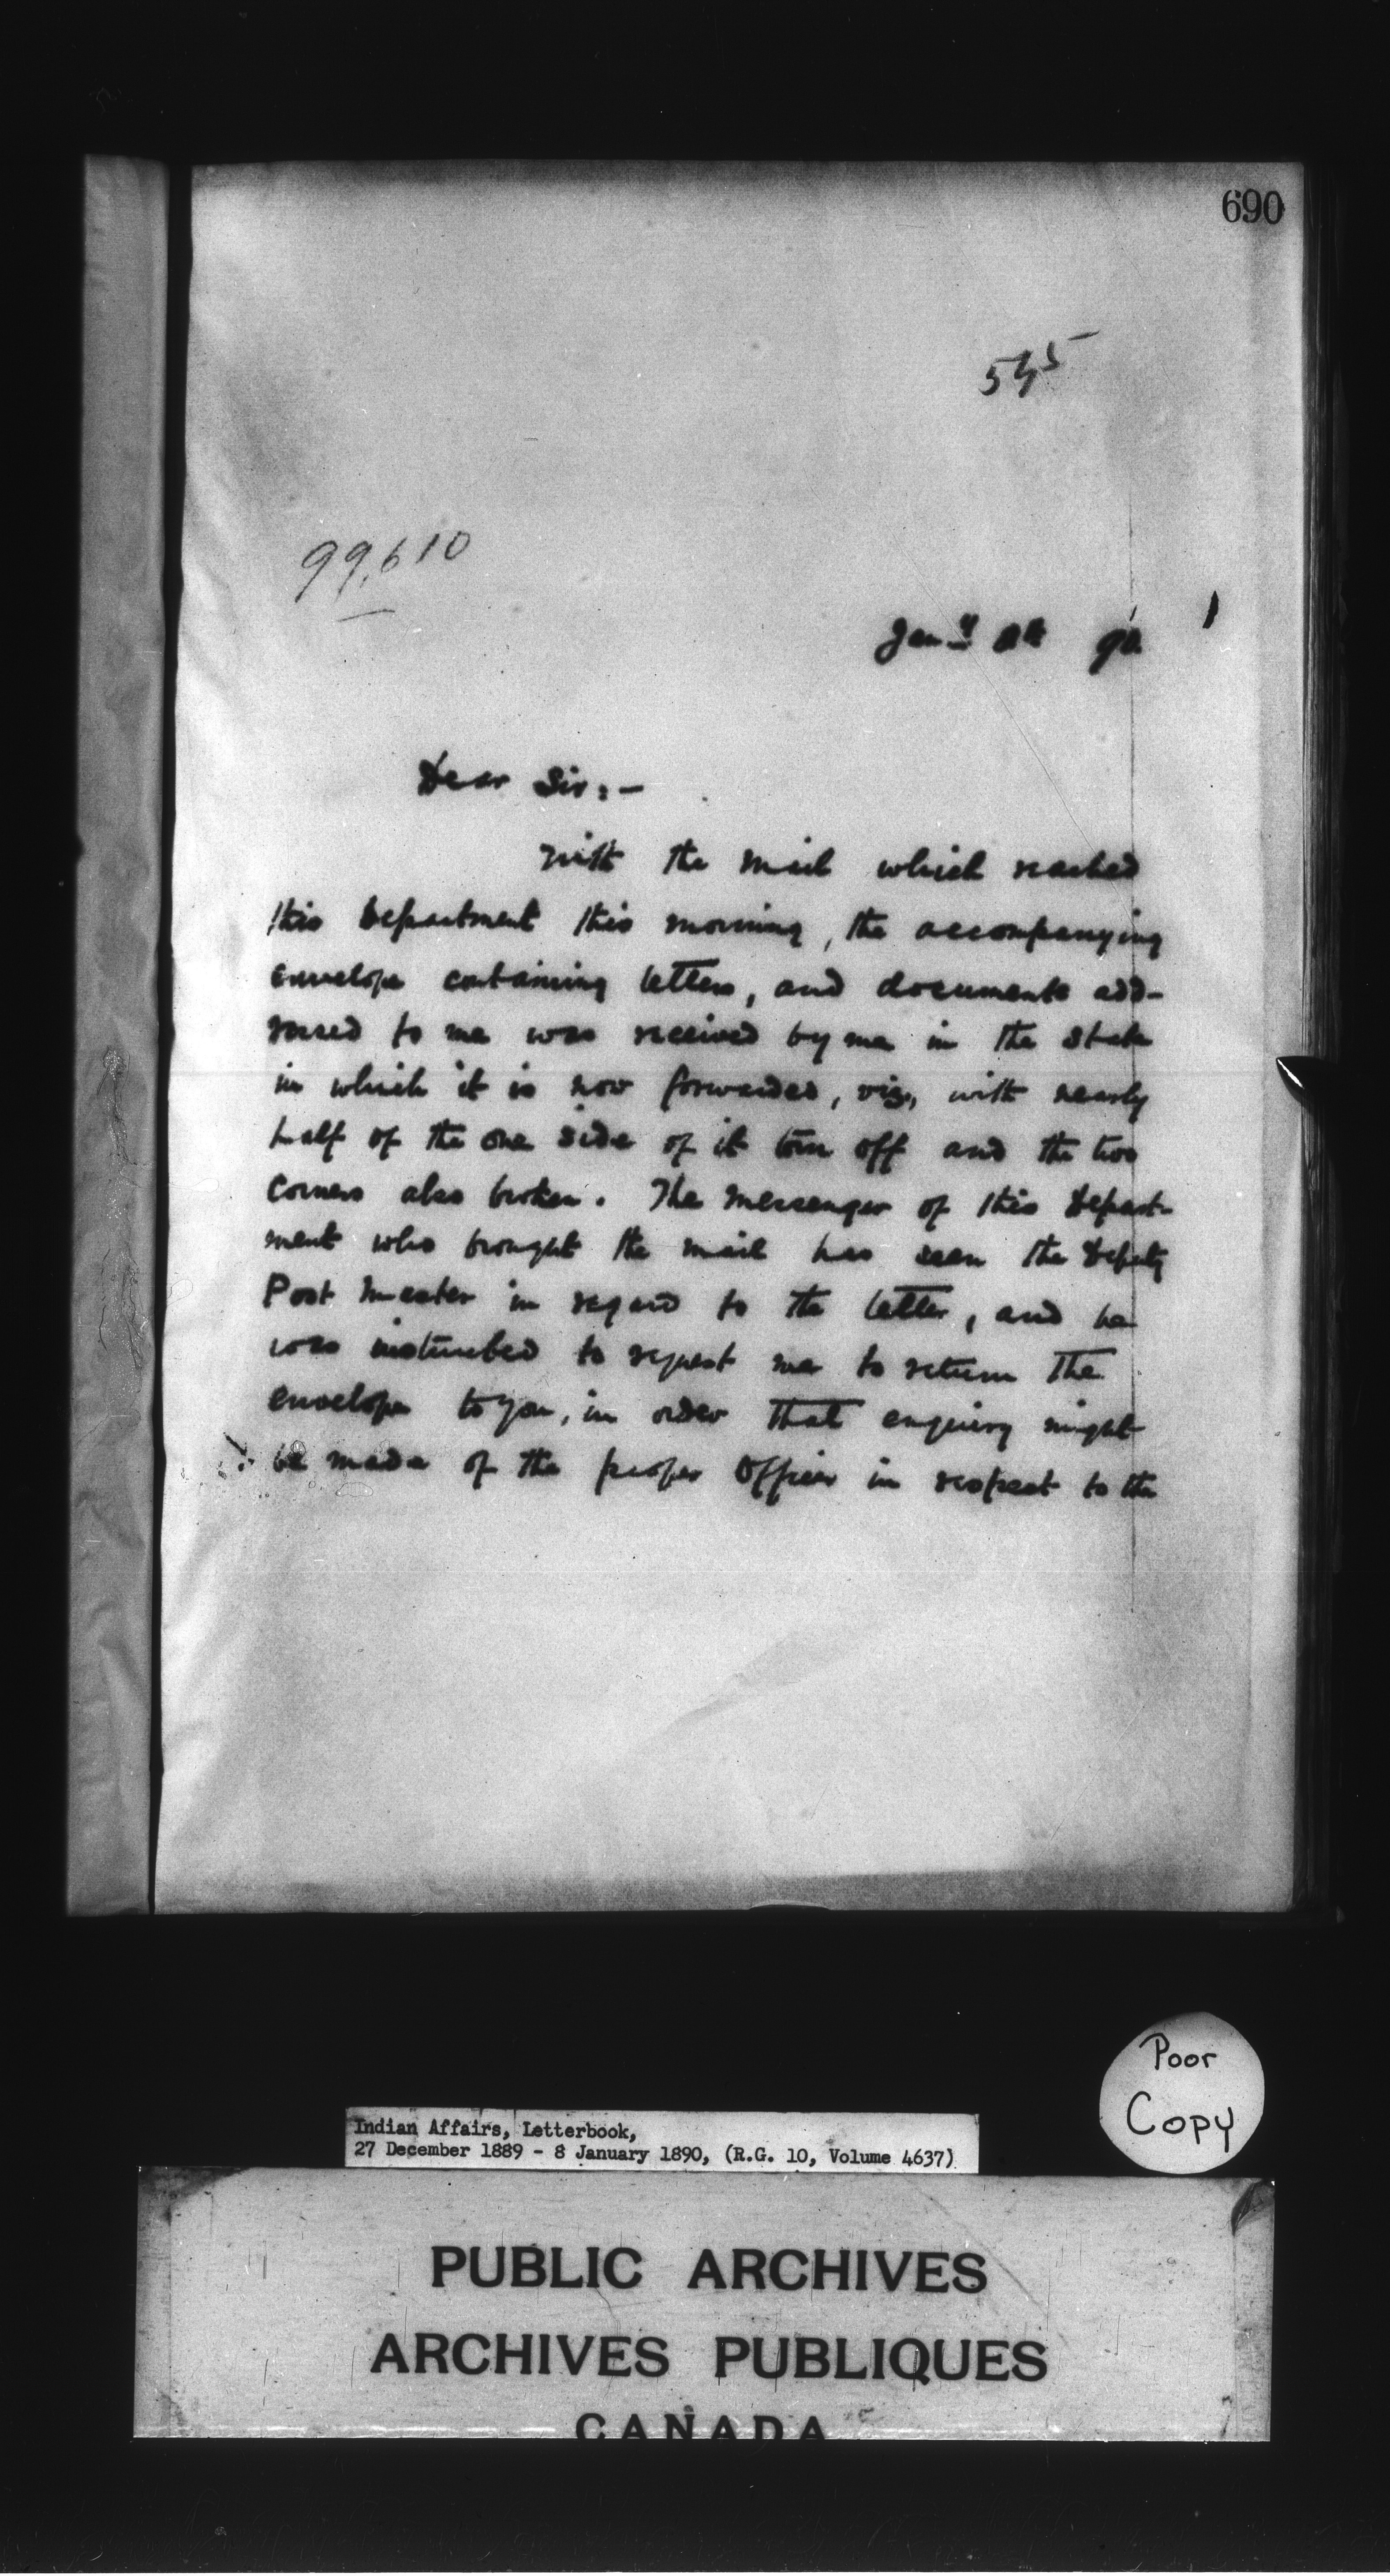 690
545
99,610
Jany 8th 90
Dear Sir:-
With the mail which reached
this Department this morning, the accompanying
envelope containing letters, and documents add-
ressed to me was received by me in the state
in which it is now forwarded, viz, with nearly
half of the one side of it torn off and the two
corners also broken. The Messenger of this Depart-
ment who brought the mail has seen the Deputy
Post Master in regard to the letter, and he
was instructed to request me to return the
envelope to you, in order that enquiry might
be made of the proper Officer in respect to the
Poor
Copy
Indian Affairs, Letterbook,
27 December 1889 - 8 January 1890, (R.G. 10, Volume 4637)
PUBLIC ARCHIVES
ARCHIVES PUBLIQUES
CANADA